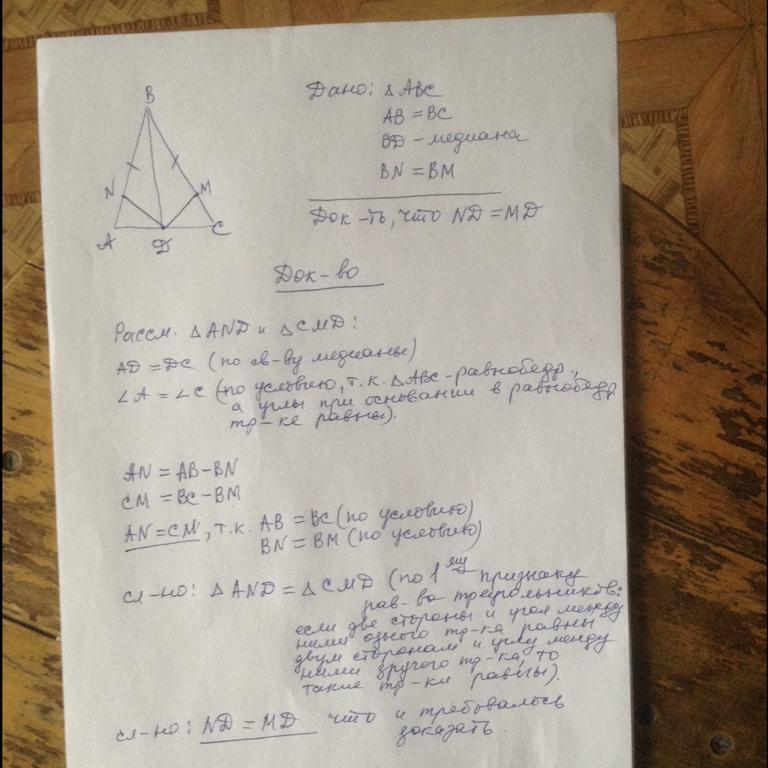 B
N
M
A
D
C
Дано: △ ABC
AB = BC
BD – медиана
BN = BM
Док-ть, что ND = MD
Док-во
Рассм. △ AND и △ CMD:
AD = DC (по св-ву медианы)
∠A = ∠C (по условию, т.к. △ABC – равнобедр.,
а углы при основании в равнобедр.
тр-ке равны).
AN = AB – BN
CM = BC – BM
AN = CM, т.к. AB = BC (по условию)
BN = BM (по условию)
сл-но: △ AND = △ CMD (по 1му признаку
рав-ва треугольников:
если две стороны и угол между
ними одного тр-ка равны
двум сторонам и углу между
ними другого тр-ка, то
такие тр-ки равны).
сл-но: ND = MD что и требовалось
доказать.